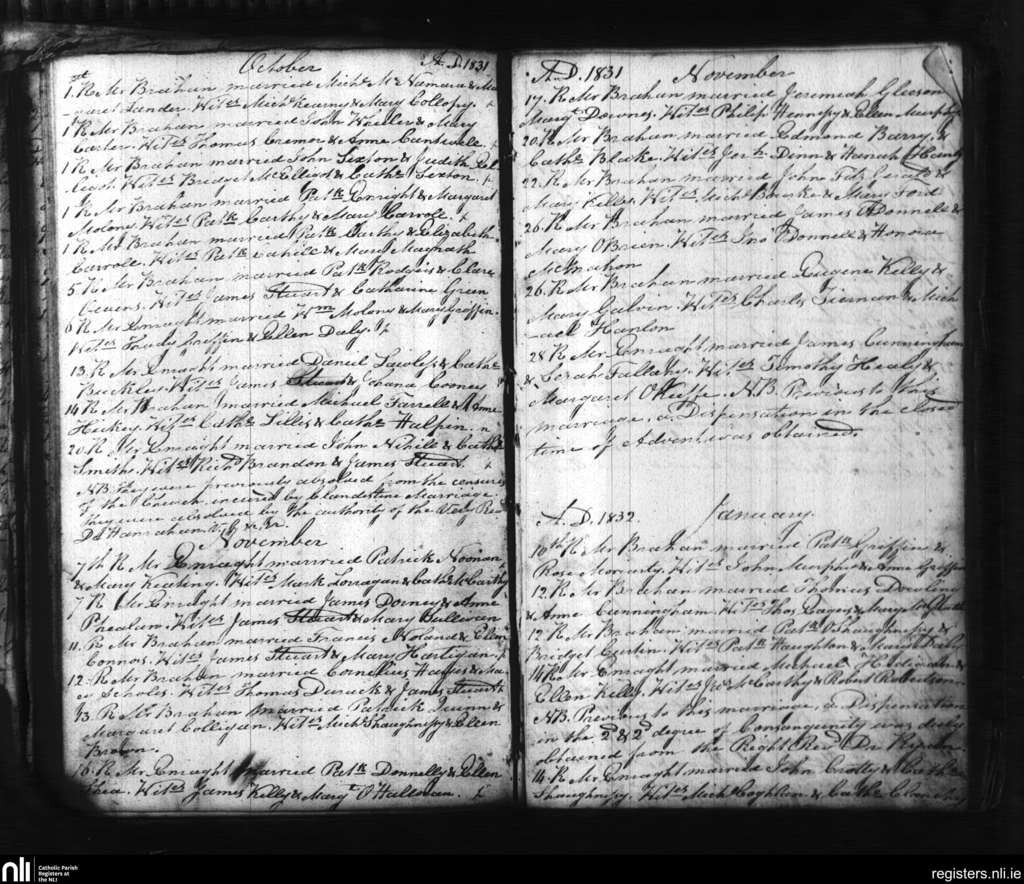 October A.D. 1831
1st R. Mr. Brahan married Michl. McNamara & Mar
garet Sender. Wit.es Michl. Kearny & Mary Collopy.
1 R. Mr. Brahan married John Wheeler & Mary
Carter. Wit.es Thomas Cremor & Anne Cantwell.
1 R. Mr. Brahan married John Sexton & Judith
Wit.es Bridget McElligot & Cath.e Sexton.
1 R. Mr. Brahan married Patk. Enright & Margaret
Molony. Wit.es Patk. Carthy & Mary Carroll.
1 R. Mr. Brahan married Patk. Carthy & Elizabeth
Carroll. Wit.es Patk. Cahill & Mary Magrath
5 R. Mr. Brahan married Patk. Rodgers & Clare
Wit.es James Stuart & Catharine Green
6 R. Mr. Enraght married Wm. Molony & Mary Griffin.
Wit.es Griffin & Ellen Daly.
13. R. Mr. Enraght married Daniel Lawless & Cathe.
Buckley. Wit.es James Stuart & Joana Cooney
14 R. Mr. Brahan married Michael Farrell & Anne
Hickey. Wit.es Cathe. Lillis & Cathe. Halpin.
20. R. Mr. Enraght married John Nihill & Cathe.
Smith. Wit.es Richd. Brandon & James Stuart.
NB. they were previously absolved from the censures
of the Church incured by Clandestine Marriage.
they were absolved by the authority of the Very Revd.
Dr. Hanrahan V.G. &c. &c.
November
7th R. Mr. Enraght married Patrick Noonan
& Mary Keating. Wit.es Mark Lorragan & Cathe. McCarthy
7 R. Mr. Enraght married James Dorney & Anne
Phealan. Wit.es James Stuart & Mary Sullivan
11. R. Mr. Brahan married Francis Noland & Ellen
Connors. Wit.es James Stuart & Mary Hartigan
12. R. Mr. Brahan married Cornelius Harper & Ma
ry Scholes. Wit.es Thomas & James Stuart
13. R. Mr. Brahan married Patrick &
Margaret Colligan. Wit.es Michl. Shaughnessy & Ellen
Brown.
16. R. Mr. Enraght married Patk. Donnelly & Ellen
Shea. Wit.es James Kelly & Mary O'Halloran.
A.D. 1831 November
17. R. Mr. Brahan married Jeremiah Gleeson &
Margt. Downes. Wit.es Philip Hennessy & Ellen Murphy
20. R. Mr. Brahan married Edmond Barry &
Cathe. Blake. Wit.es Josh. Dinn & Hanah
22. R. Mr. Brahan married John Fitz Gerald &
Mary Keller. Wit.es Michl. Bourke & Mary Ford
26. R. Mr. Brahan married James O'Donnell &
Mary O'Brien. Wit.es Jno. O'Donnell & Honora
McMahon
26. R. Mr. Brahan married Eugene Kelly &
Mary Galvin. Wit.es Charles Tiernan & Mich
ael Hanlon
28 R. Mr. Enraght married James Cunningham
& Sarah Fallahy. Wit.es Timothy Healy &
Margaret O'Keffe. N.B. Previous to this
marriage a Dispensation in the closed
time of Advent was obtained.
A.D. 1832. January.
10th R. Mr. Brahan married Patk. Griffin &
Rose Moriarty. Wit.es John Murphy & Anne Griffin
12. R. Mr. Brahan married Thomas Dowling
& Anne Cunningham. Wit.es Thos. & Mary
12. R. Mr. Brahan married Patk. O'Shaughnessy &
Bridget Curtin. Wit.es Patk. Haughton & Mary
14 R. Mr. Enraght married Michael Hedivan &
Ellen Kelly. Wit.es Jno. McCarthy & Robert Robertson
NB. Previous to this marriage, a Dispensation
in the 2d. & 2d. degree of Consanguinity was duly
obtained from the Right Revd. Dr. Ryan.
14. R. Mr. Enraght married John Crotty & Cathe.
Shaughnessy. Wit.es Michl. Coghlan & Cathe. Clanchy
nli
Catholic Parish
Registers at
the NLI
registers.nli.ie